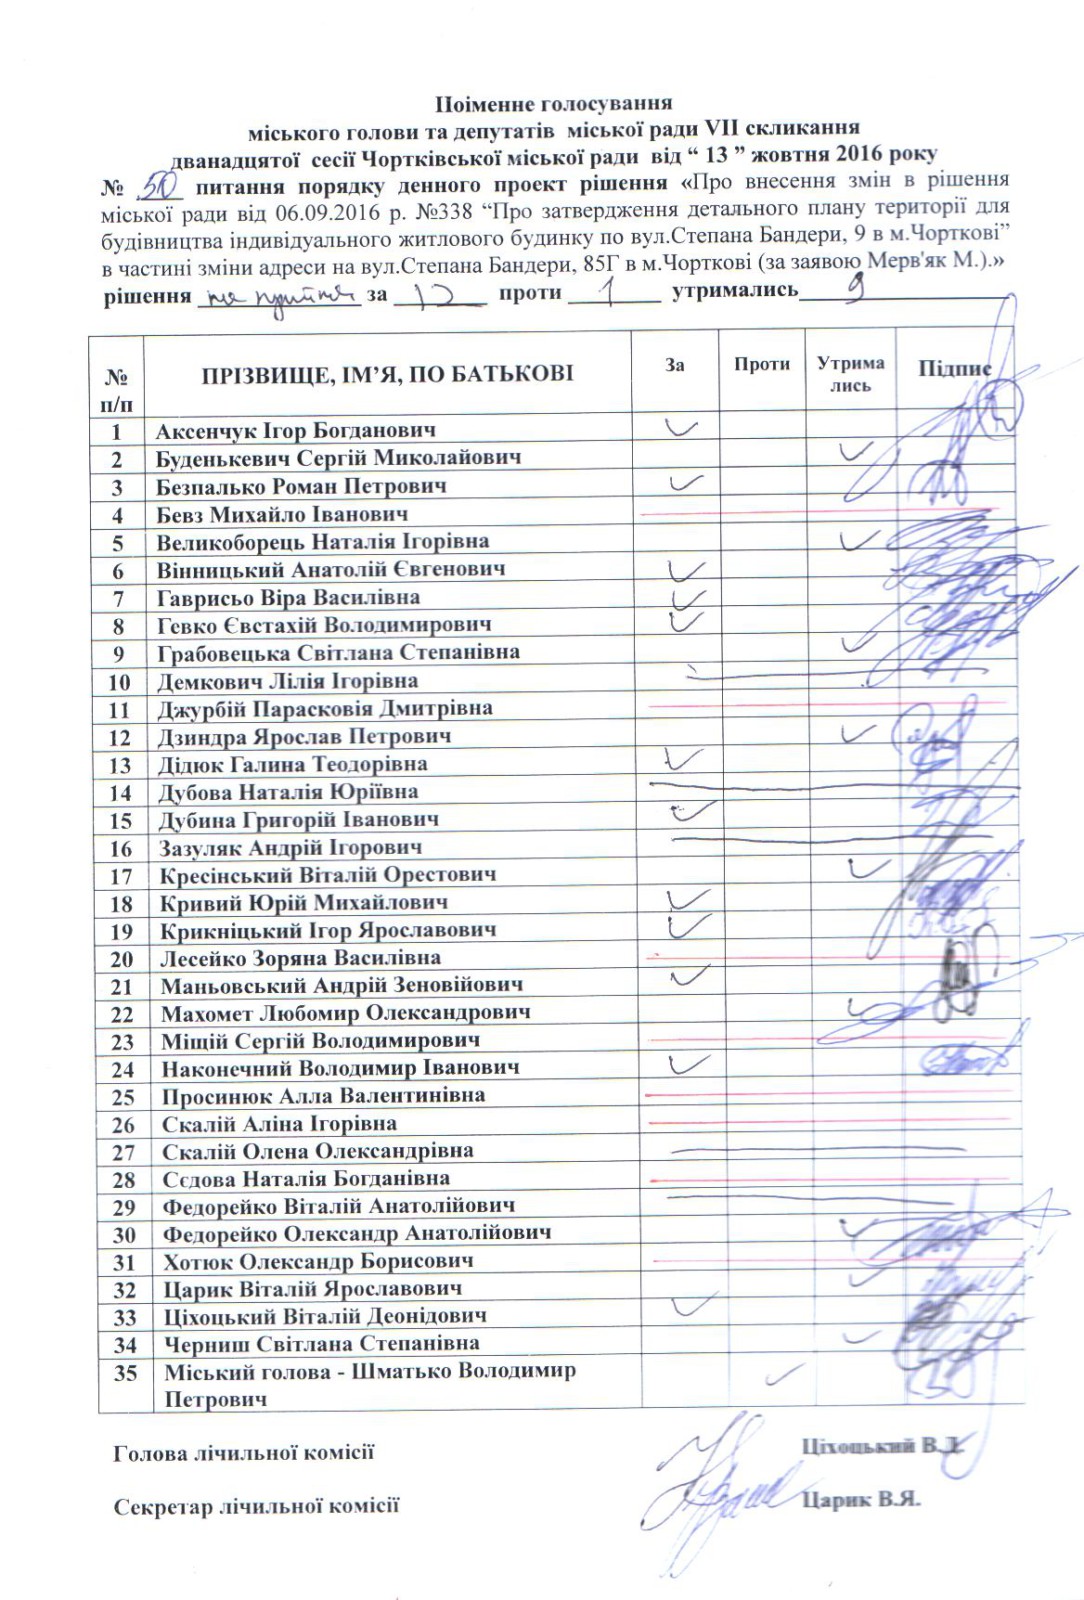 Поіменне голосування
міського голови та депутатів міської ради VII скликання
дванадцятої сесії Чортківської міської ради від “ 13 ” жовтня 2016 року
№ 50 питання порядку денного проект рішення «Про внесення змін в рішення
міської ради від 06.09.2016 р. №338 “Про затвердження детального плану території для
будівництва індивідуального житлового будинку по вул.Степана Бандери, 9 в м.Чорткові”
в частині зміни адреси на вул.Степана Бандери, 85Г в м.Чорткові (за заявою Мерв'як М.).»
рішення не прийнят за 12 проти 1 утримались 9
№ п/п ПРІЗВИЩЕ, ІМ’Я, ПО БАТЬКОВІ За Проти Утрима лись Підпис
1 Аксенчук Ігор Богданович
2 Буденькевич Сергій Миколайович
3 Безпалько Роман Петрович
4 Бевз Михайло Іванович
5 Великоборець Наталія Ігорівна
6 Вінницький Анатолій Євгенович
7 Гаврисьо Віра Василівна
8 Гевко Євстахій Володимирович
9 Грабовецька Світлана Степанівна
10 Демкович Лілія Ігорівна
11 Джурбій Парасковія Дмитрівна
12 Дзиндра Ярослав Петрович
13 Дідюк Галина Теодорівна
14 Дубова Наталія Юріївна
15 Дубина Григорій Іванович
16 Зазуляк Андрій Ігорович
17 Кресінський Віталій Орестович
18 Кривий Юрій Михайлович
19 Крикніцький Ігор Ярославович
20 Лесейко Зоряна Василівна
21 Маньовський Андрій Зеновійович
22 Махомет Любомир Олександрович
23 Міщій Сергій Володимирович
24 Наконечний Володимир Іванович
25 Просинюк Алла Валентинівна
26 Скалій Аліна Ігорівна
27 Скалій Олена Олександрівна
28 Сєдова Наталія Богданівна
29 Федорейко Віталій Анатолійович
30 Федорейко Олександр Анатолійович
31 Хотюк Олександр Борисович
32 Царик Віталій Ярославович
33 Ціхоцький Віталій Деонідович
34 Черниш Світлана Степанівна
35 Міський голова - Шматько Володимир
Петрович
Голова лічильної комісії Ціхоцький В.Д.
Секретар лічильної комісії Царик В.Я.